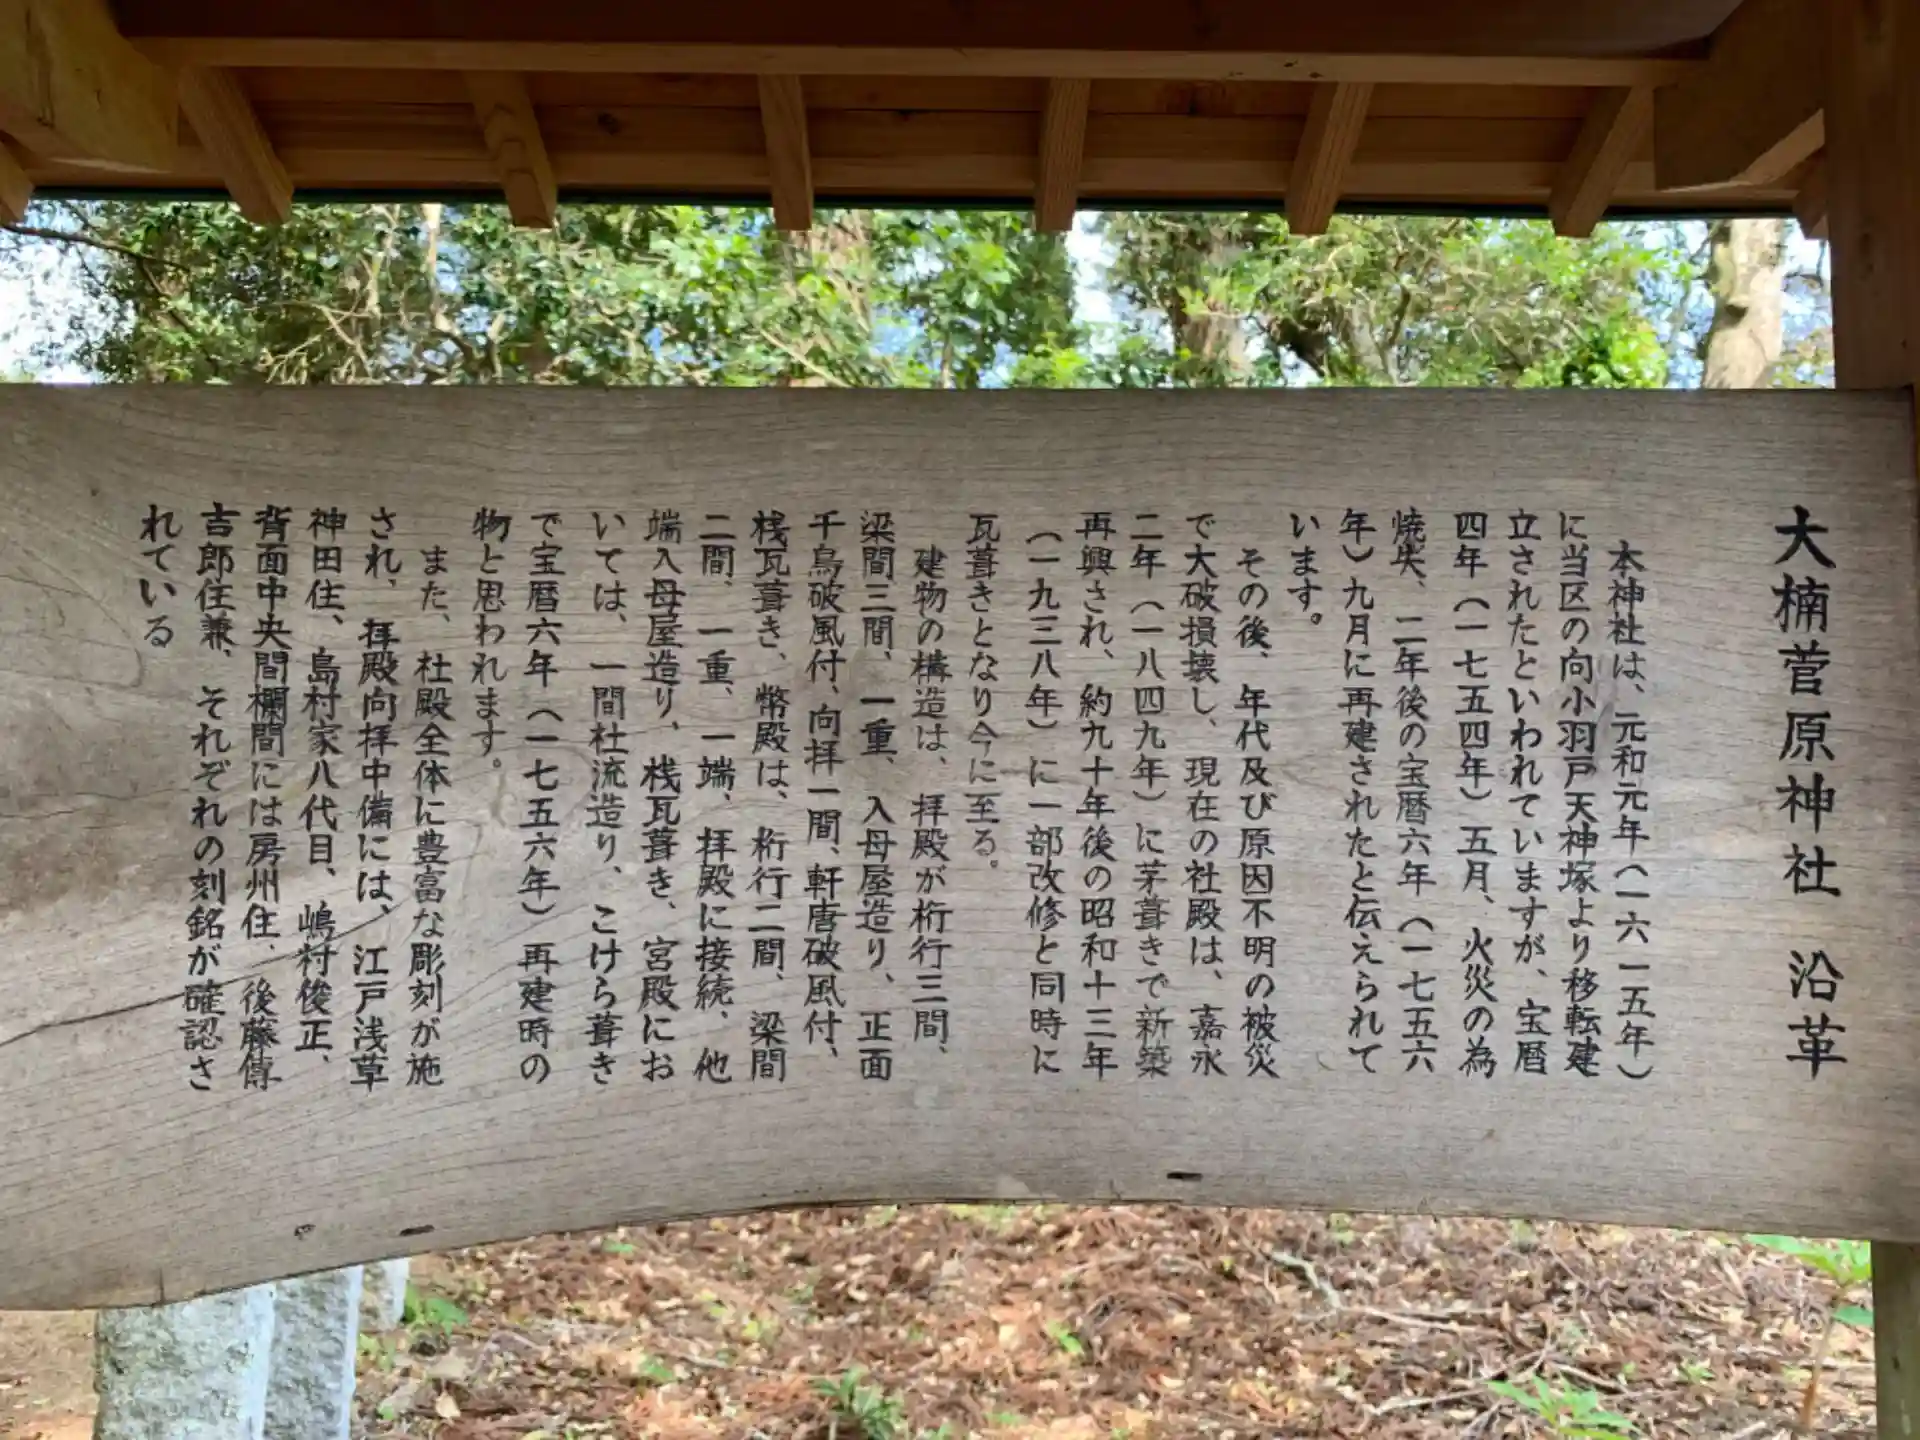 大楠菅原神社 沿革
本神社は、元和元年(一六一五年)
に当区の向小羽戸天神塚より移転建
立されたといわれていますが、宝暦
四年(一七五四年)五月、火災の為
焼失、二年後の宝暦六年(一七五六
年)九月に再建されたと伝えられて
います。
その後、年代及び原因不明の被災
で大破損壊し、現在の社殿は、嘉永
二年(一八四九年)に茅葺きで新築
再興され、約九十年後の昭和十三年
(一九三八年)に一部改修と同時に
瓦葺きとなり今に至る。
建物の構造は、拝殿が桁行三間、
梁間三間、一重、入母屋造り、正面
千鳥破風付、向拝一間、軒唐破風付、
桟瓦葺き、幣殿は、桁行二間、梁間
二間、一重、一端、拝殿に接続、他
端入母屋造り、桟瓦葺き、宮殿にお
いては、一間社流造り、こけら葺き
で宝暦六年(一七五六年)再建時の
物と思われます。
また、社殿全体に豊富な彫刻が施
され、拝殿向拝中備には、江戸浅草
神田住、島村家八代目、嶋村俊正、
背面中央間欄間には房州住、後藤傳
吉郎住兼、それぞれの刻銘が確認さ
れている